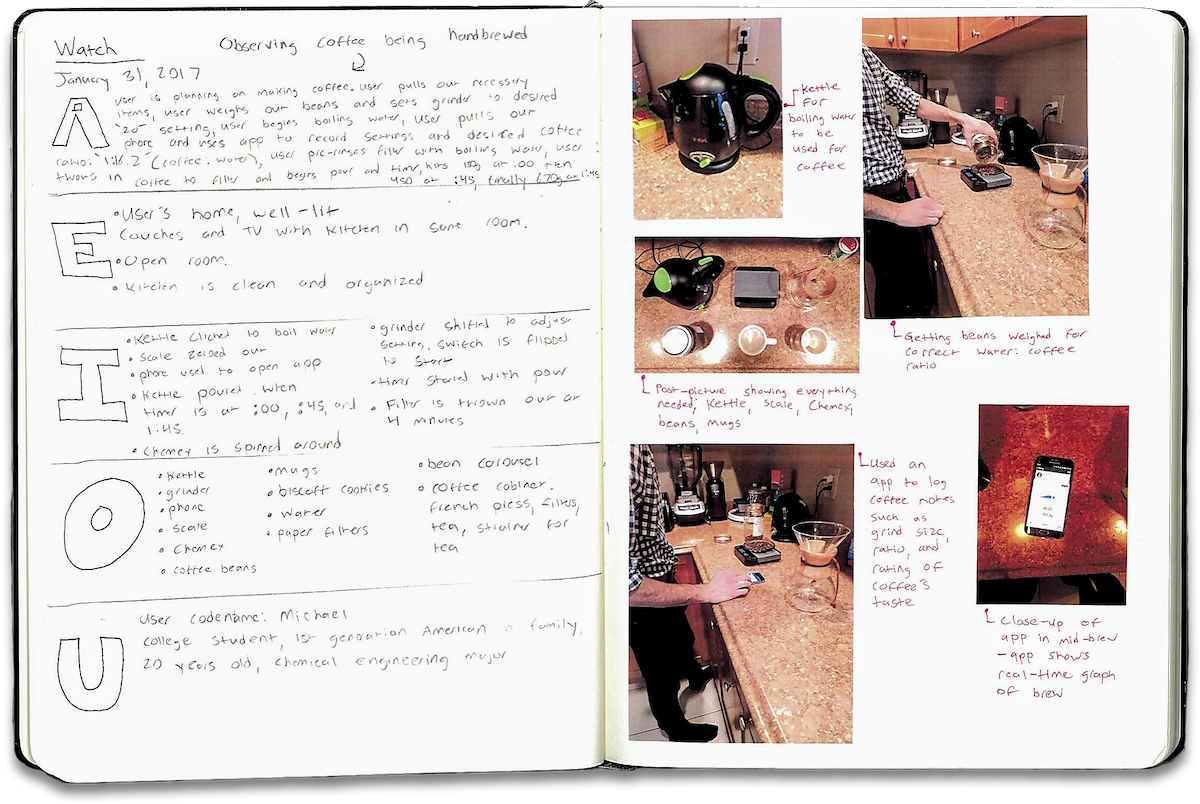 Watch
Observing coffee being handbrewed
January 31, 2017
A
user is planning on making coffee. user pulls out necessary
items, user weighs out beans and sets grinder to desired
"20" setting, user begins boiling water, user pulls out
phone and uses app to record settings and desired coffee
ratio: "1:16.2" (coffee: water), user pre-rinses filter with boiling water, user
throws in coffee to filter and begins pour and timer, hits 150g at :00 then
450 at :45, finally 670g at 1:45
E
• User's home, well-lit
Couches and TV with kitchen in same room.
• Open room.
• Kitchen is clean and organized
I
• Kettle clicked to boil water
• Scale zeroed out
• phone used to open app
• Kettle poured when
timer is at :00, :45, and
1:45.
• Chemex is spinned around
• grinder shifted to adjust
setting, switch is flipped
to start
• timer started with pour
• Filter is thrown out at
4 minutes
O
• Kettle
• grinder
• phone
• scale
• Chemex
• coffee beans
• mugs
• biscoff cookies
• water
• paper filters
• bean carousel
• coffee cabinet:
french press, filters,
tea, strainer for
tea
U
User codename: Michael
College student, 1st generation American in family,
20 years old, Chemical engineering major
Kettle
for
boiling water
to be
used for
coffee
Getting beans weighed for
correct water: coffee
ratio
Post-picture showing everything
needed; Kettle, scale, Chemex,
beans, mugs
Used an
app to log
coffee notes
such as
grind size,
ratio, and
rating of
coffee's
taste
Close-up of
app in mid-brew
- app shows
real-time graph
of brew